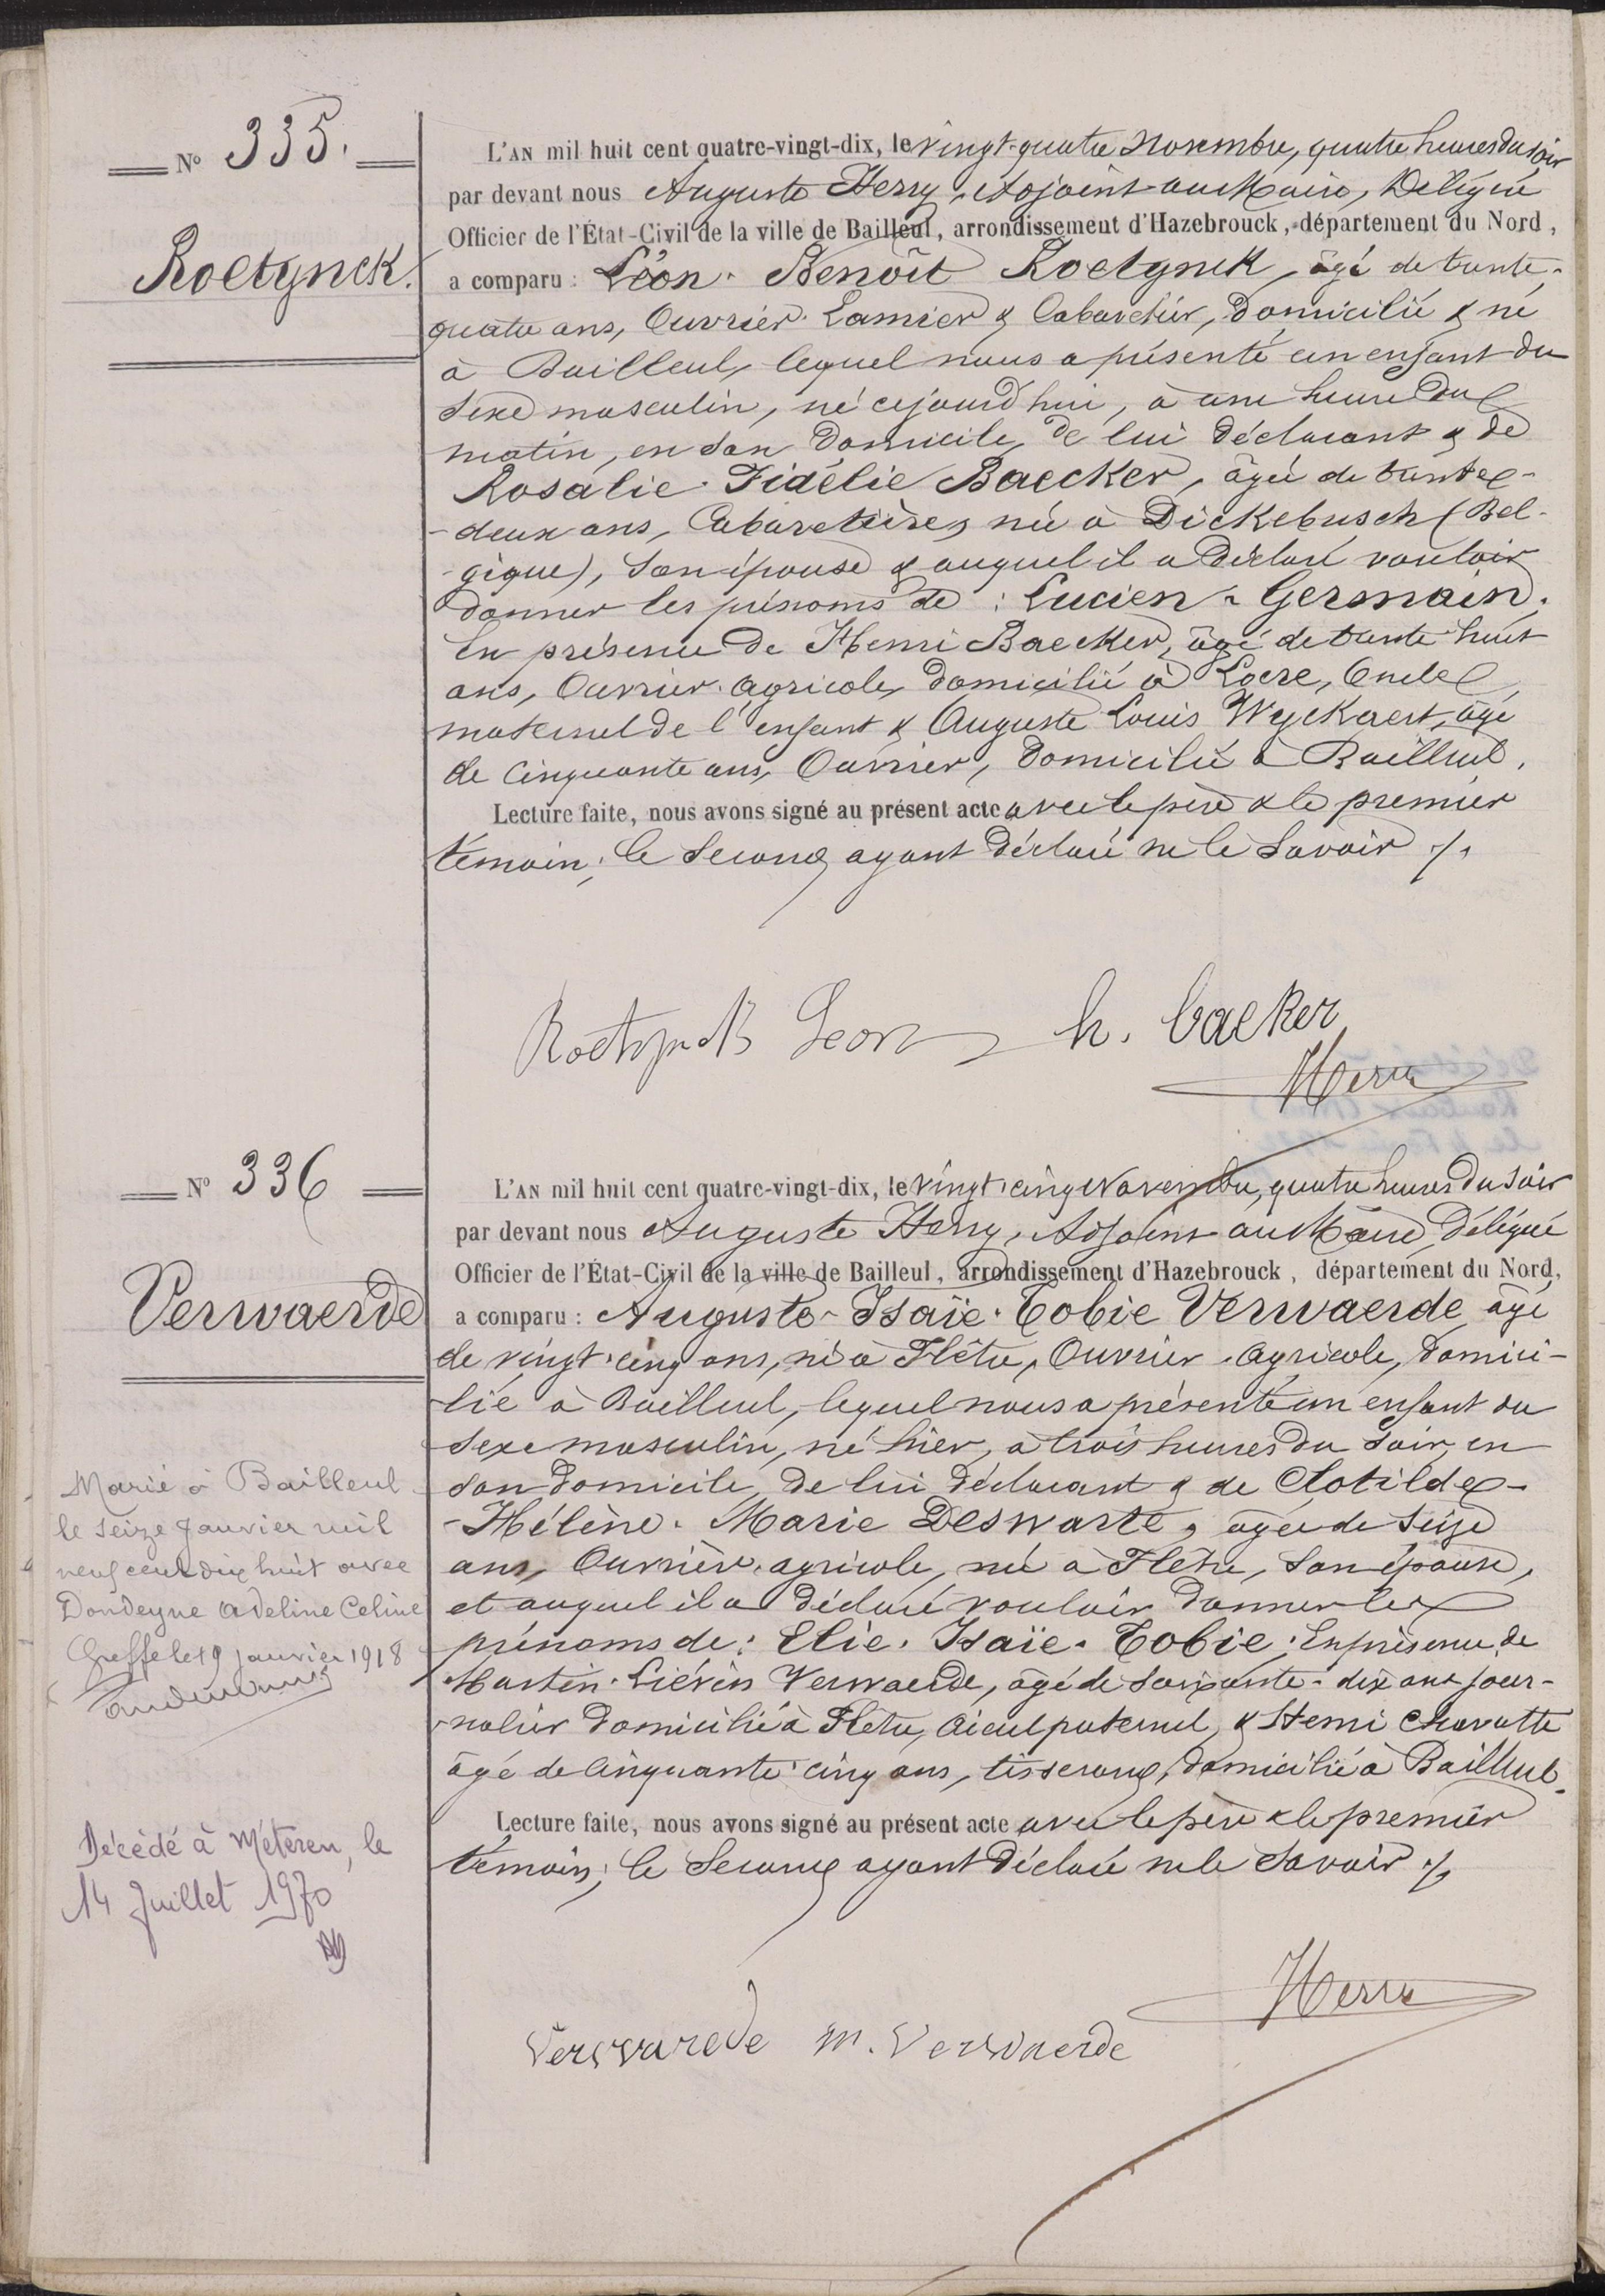 N° 335.
Roetynck.
L'AN mil huit cent quatre-vingt-dix, le vingt-quatre Novembre, quatre heures du soir
par devant nous Auguste Herry, Adjoint au Maire, Délégué
Officier de l'État-Civil de la ville de Bailleul, arrondissement d'Hazebrouck, département du Nord,
a comparu : Léon-Benoît Roetynck, âgé de trente-
quatre ans, Ouvrier Lamier & Cabaretier, domicilié & né
à Bailleul, lequel nous a présenté un enfant du
sexe masculin, né cejourd'hui, à une heure du
matin, en son domicile, de lui déclarant & de
Rosalie-Fidélie Baecker, âgée de trente-
-deux ans, Cabaretière, née à Dickebusch (Bel-
-gique), son épouse & auquel il a déclaré vouloir
donner les prénoms de : Lucien-Germain.
En présence de Henri Baecker, âgé de trente-huit
ans, Ouvrier-agricole, domicilié à Locre, Oncle
maternel de l'enfant & Auguste Louis Wyckaert, âgé
de cinquante ans, Ouvrier, domicilié à Bailleul.
Lecture faite, nous avons signé au présent acte avec le père & le premier
témoin; le second ayant déclaré ne le savoir ./.
Roetynck Leon h. baeker
Herry
N° 336
Verwaerde
L'AN mil huit cent quatre-vingt-dix, le vingt-cinq Novembre, quatre heures du soir
par devant nous Auguste Herry, Adjoint au Maire, Délégué
Officier de l'État-Civil de la ville de Bailleul, arrondissement d'Hazebrouck, département du Nord,
a comparu : Auguste-Isaïe-Tobie Verwaerde, âgé
de vingt-cinq ans, né à Flêtre, Ouvrier-agricole, domici-
-lié à Bailleul, lequel nous a présenté un enfant du
sexe masculin, né hier, à trois heures du soir, en
son domicile, de lui déclarant & de Clotilde-
-Hélène-Marie Deswarte, âgée de seize
ans, Ouvrière-agricole, née à Flêtre, son épouse,
et auquel il a déclaré vouloir donner les
prénoms de : Elie-Isaïe-Tobie. En présence de
Martin-Liévin Verwaerde, âgé de soixante-dix ans, jour-
-nalier domicilié à Flêtre, aïeul paternel, & Henri Charatte
âgé de cinquante-cinq ans, tisserand, domicilié à Bailleul.
Lecture faite, nous avons signé au présent acte avec le père & le premier
témoin; le second ayant déclaré ne le savoir ./.
Marié à Bailleul
le seize Janvier mil
neuf cent dix huit avec
Dondeyne Adeline Celine
Greffe le 19 janvier 1918
Décédé à Méteren, le
14 Juillet 1970
Herry
Verwarede m. Verwaerde